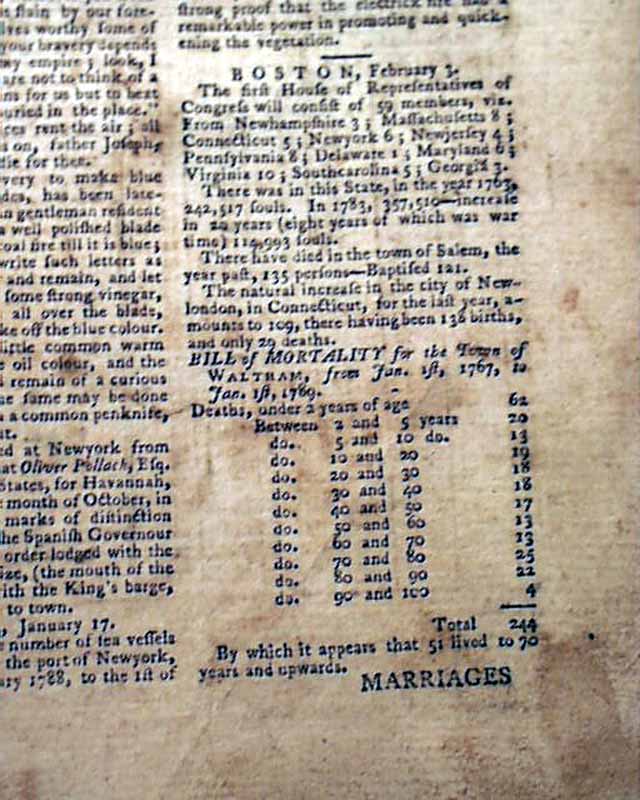 is slain by our fore-
lves worthy some of
your bravery depends
my empire; look, I
are not to think of a
ns for us but to beat
buried in the place."
ices rent the air; all
s on, father Joseph,
die for thee.
very to make blue
des, has been late-
n gentleman resident
a well polished blade
coal fire till it is blue;
write such letters as
and remain, and let
some strong vinegar,
all over the blade,
ke off the blue colour.
little common warm
e oil colour, and the
d remain of a curious
he same may be done
a common penknife,
t.
ed at Newyork from
at Oliver Pollock, Esq.
States, for Havannah,
month of October, in
marks of distinction
the Spanish Governour
order lodged with the
ize, (the mouth of the
with the King's barge,
to town.
, January 17.
e number of tea vessels
the port of Newyork,
ary 1788, to the 1st of
strong proof that the electrick fire has a
remarkable power in promoting and quick-
ening the vegetation.
BOSTON, February 3.
The first House of Representatives of
Congress will consist of 59 members, viz.
From Newhampshire 3; Massachusetts 8;
Connecticut 5; Newyork 6; Newjersey 4;
Pennsylvania 8; Delaware 1; Maryland 6;
Virginia 10; Southcarolina 5; Georgia 3.
There was in this State, in the year 1763,
242,517 souls. In 1783, 357,510—increase
in 20 years (eight years of which was war
time) 114,993 souls.
There have died in the town of Salem, the
year past, 135 persons—Baptised 121.
The natural increase in the city of New-
london, in Connecticut, for the last year, a-
mounts to 109, there having been 138 births,
and only 29 deaths.
BILL of MORTALITY for the Town of
WALTHAM, from Jan. 1st, 1767, to
Jan. 1st, 1789.
Deaths, under 2 years of age 62
Between 2 and 5 years 20
do. 5 and 10 do. 13
do. 10 and 20 19
do. 20 and 30 18
do. 30 and 40 18
do. 40 and 50 17
do. 50 and 60 13
do. 60 and 70 13
do. 70 and 80 25
do. 80 and 90 22
do. 90 and 100 4
Total 244
By which it appears that 51 lived to 70
years and upwards.
MARRIAGES